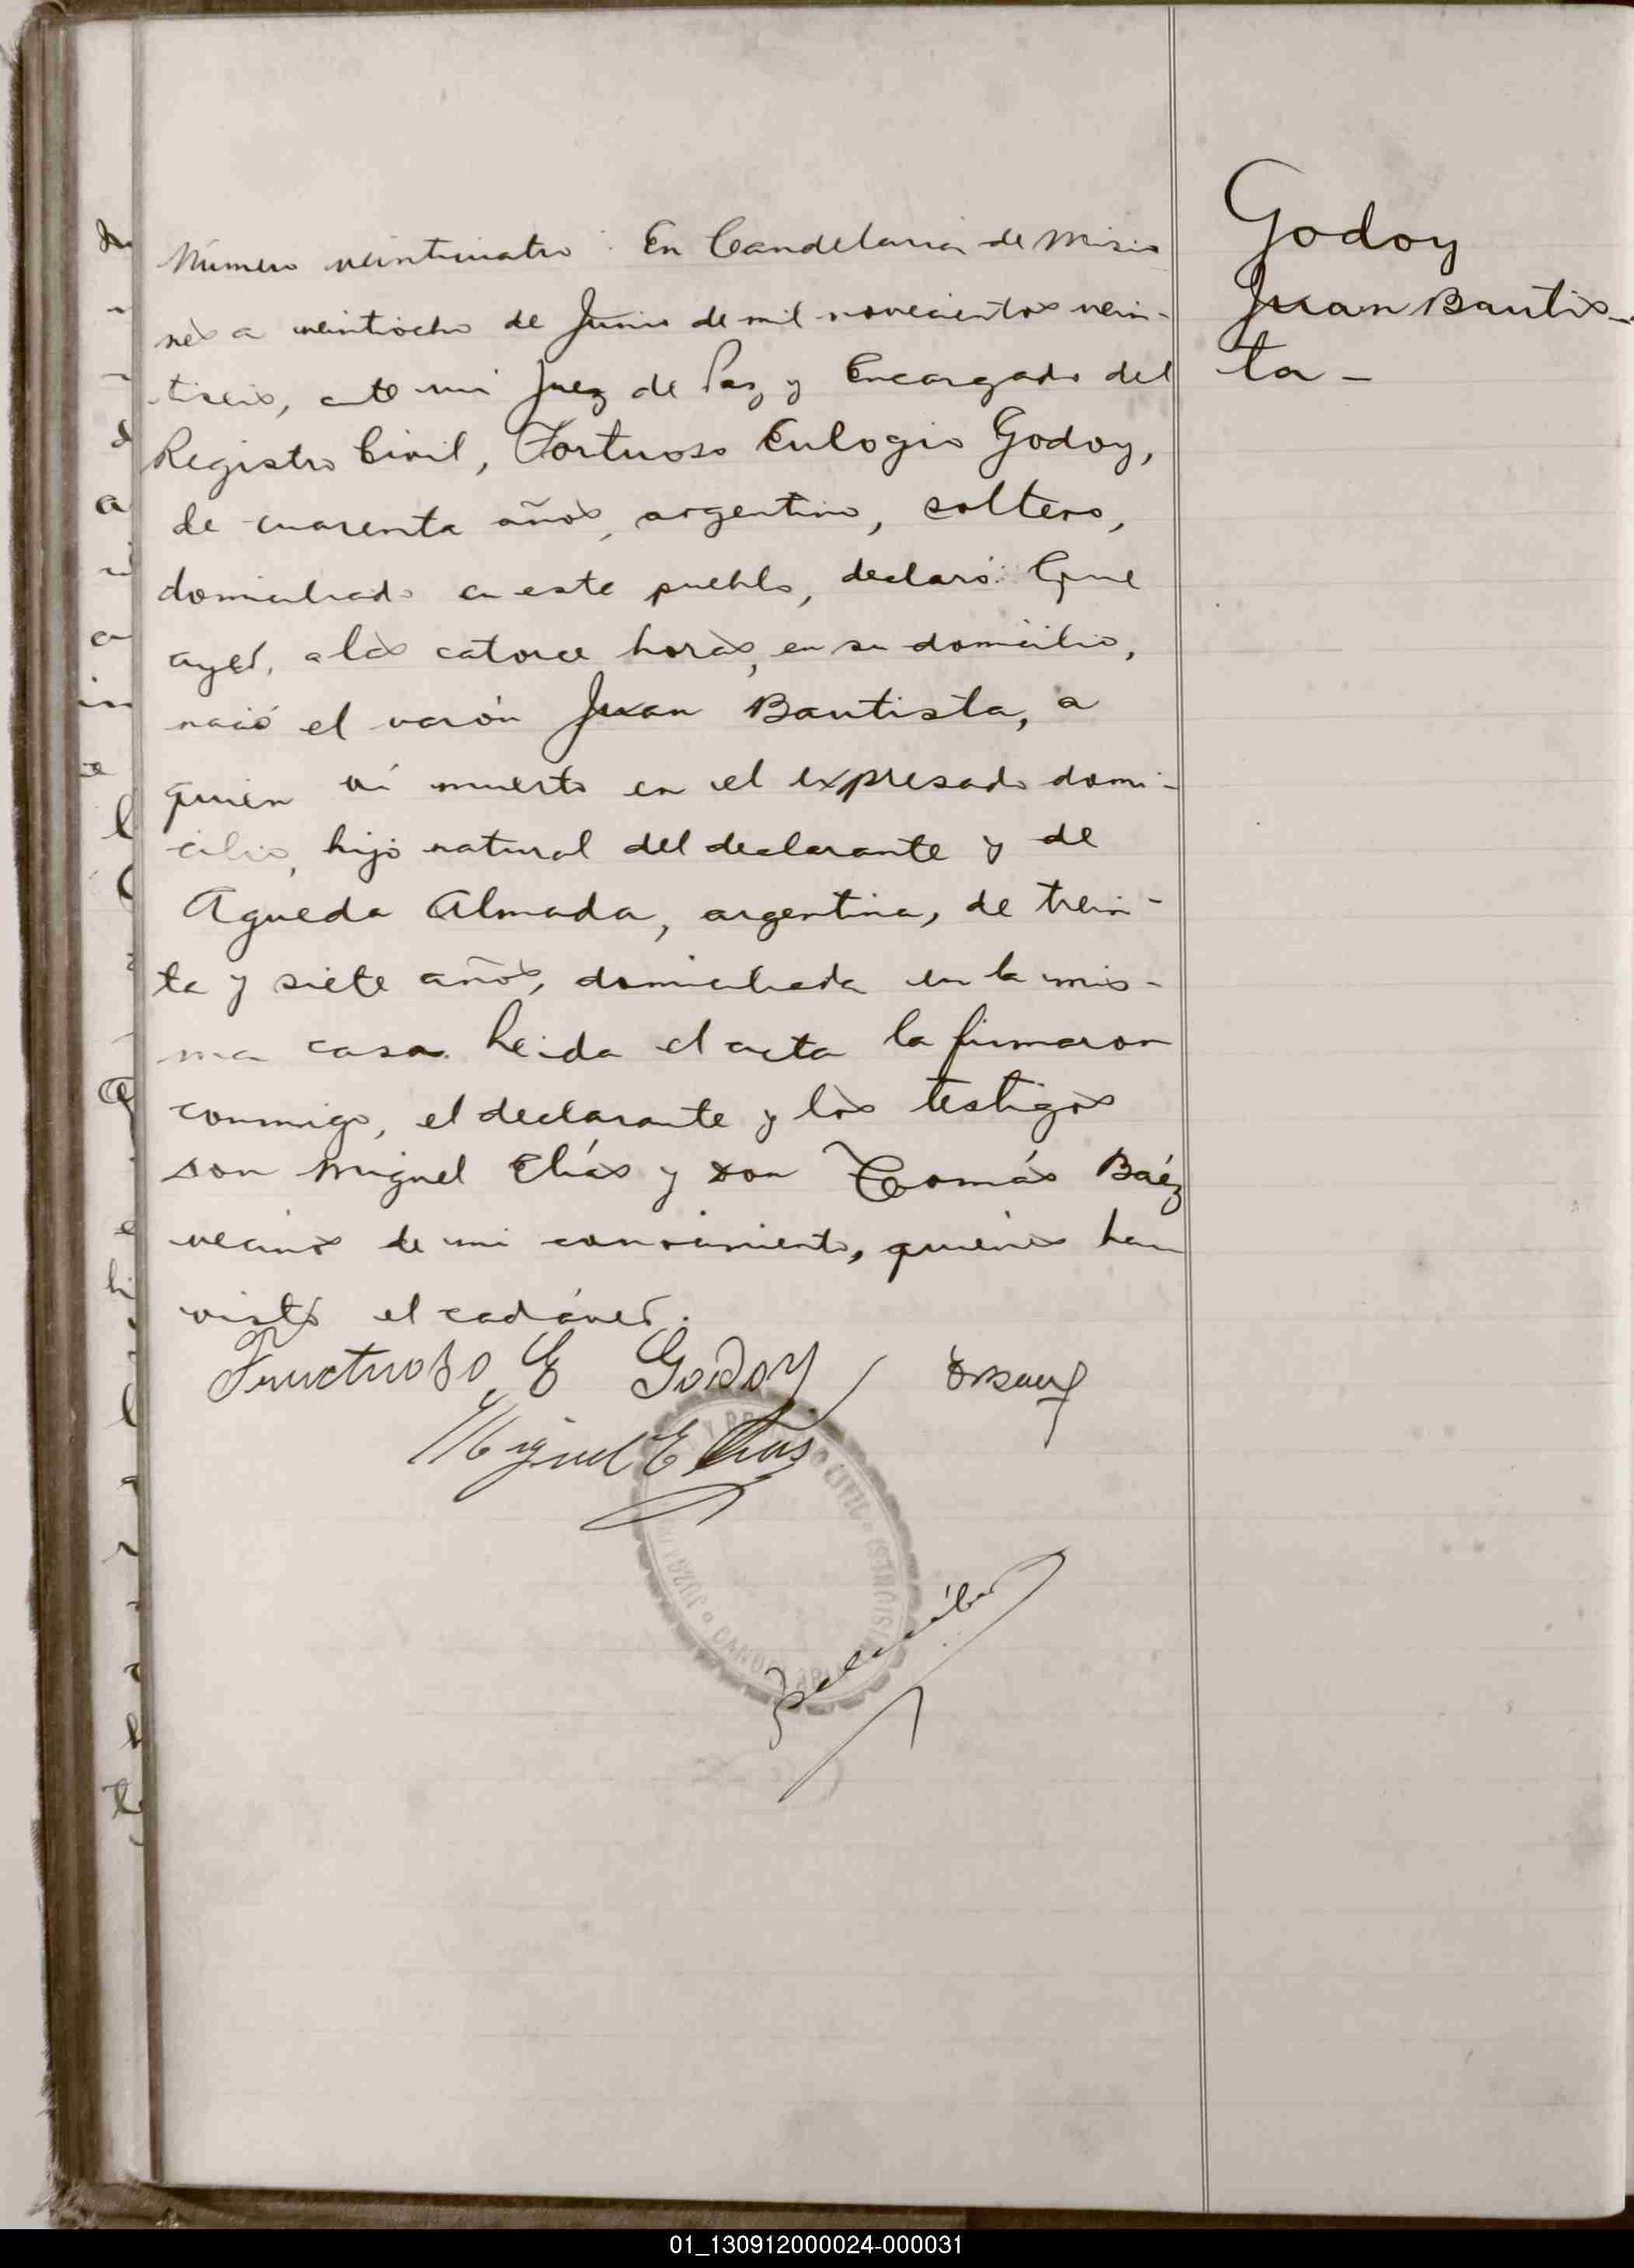 Número veinticuatro: En Candelaria de Misio
nes a veintiocho de Junio de mil novecientos vein-
tiseis, ante mi Juez de Paz y Encargado del
Registro Civil, Fortuoso Eulogio Godoy,
de cuarenta años, argentino, soltero,
domiciliado en este pueblo, declaró: Que
ayer, a las catorce horas, en su domicilio,
nació el varón Juan Bautista, a
quien vi muerto en el expresado domi-
cilio, hijo natural del declarante y de
Agueda Almada, argentina, de trein-
ta y siete años, domiciliada en la mis-
ma casa. Leida el acta la firmaron
conmigo, el declarante y los testigos
don Miguel Elías y don Tomás Báez
vecinos de mi conocimiento, quienes han
visto el cadáver.
Godoy
Juan Bautis-
ta-
Fructuoso E Godoy
TBaez
Miguel Elias
REGISTRO CIVIL (MISIONES) CANDELARIA JUZGADO
01_130912000024-000031